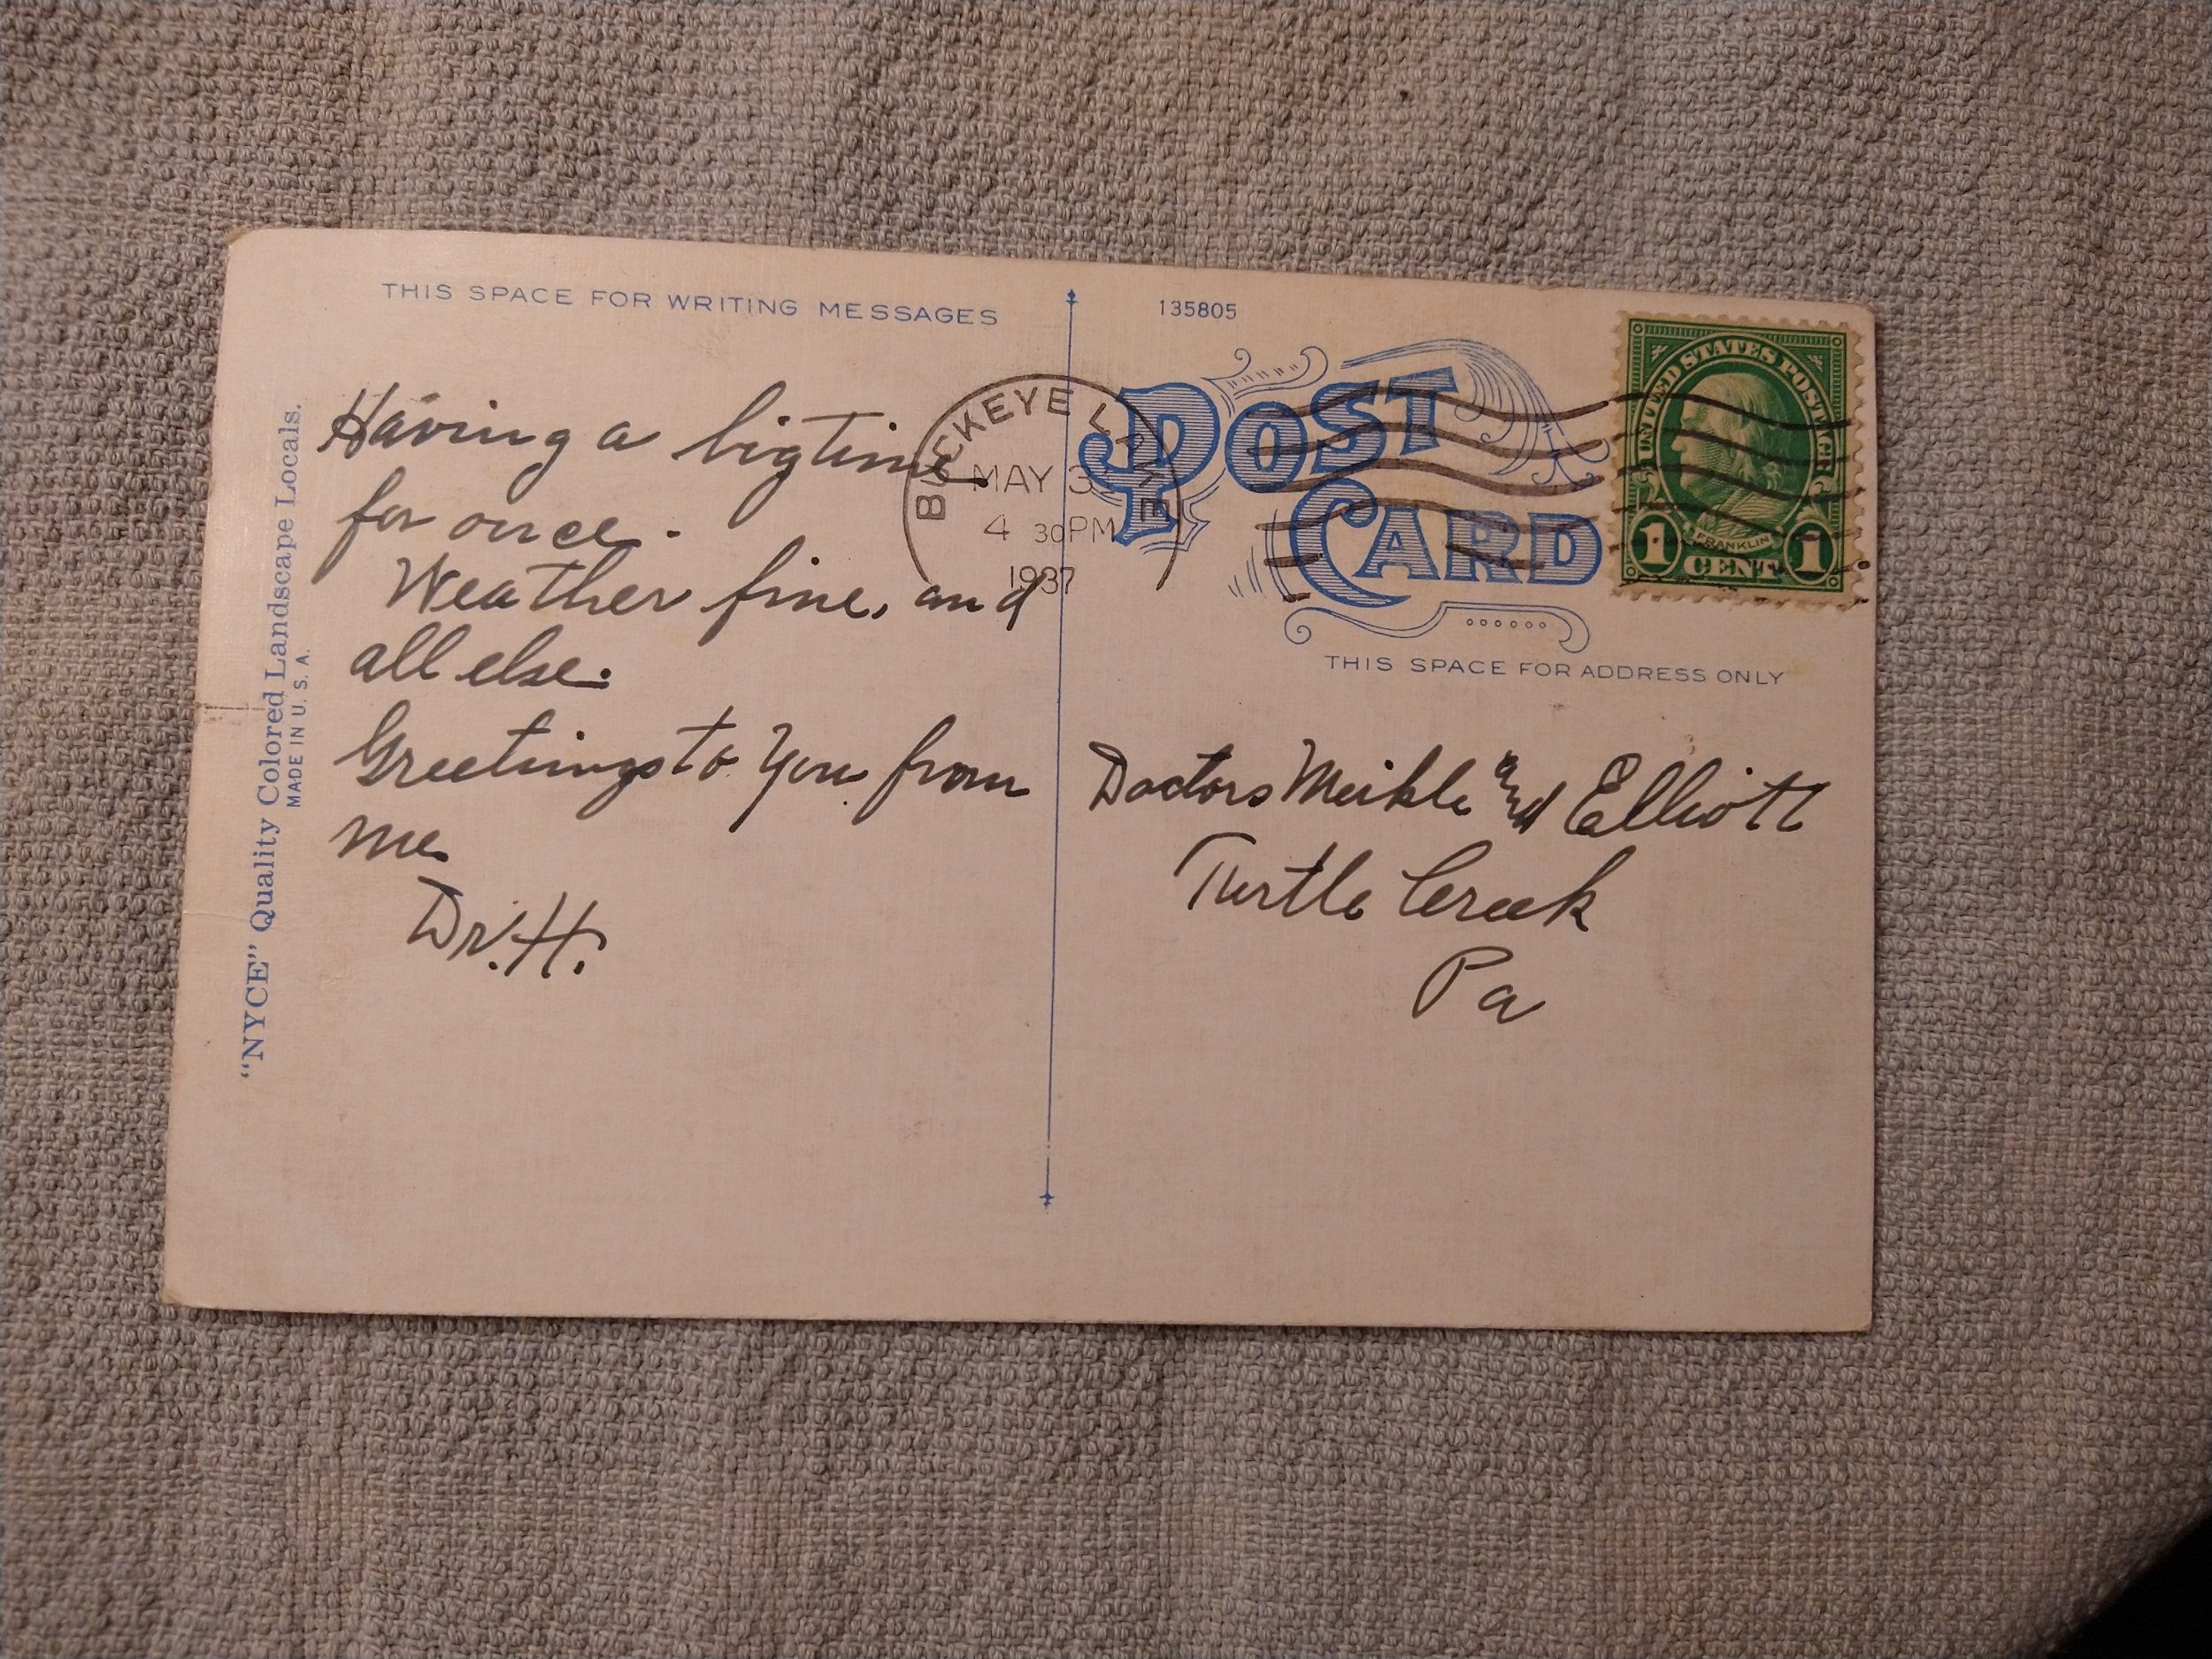 THIS SPACE FOR WRITING MESSAGES
Having a big time
for once.
Weather fine, and
all else.
Greetings to you from
me
Dr. H.
"NYCE" Quality Colored Landscape Locals.
MADE IN U. S. A.
BUCKEYE LAKE
MAY 31
4 30PM
1937
135805
POST
CARD
UNITED STATES POSTAGE
FRANKLIN
1 CENT 1
THIS SPACE FOR ADDRESS ONLY
Doctors Meikle and Elliott
Turtle Creek
Pa